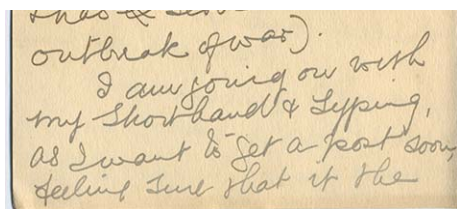 outbreak of war).
I am going on with
my Shorthand & Typing,
as I want to get a post soon,
feeling sure that if the